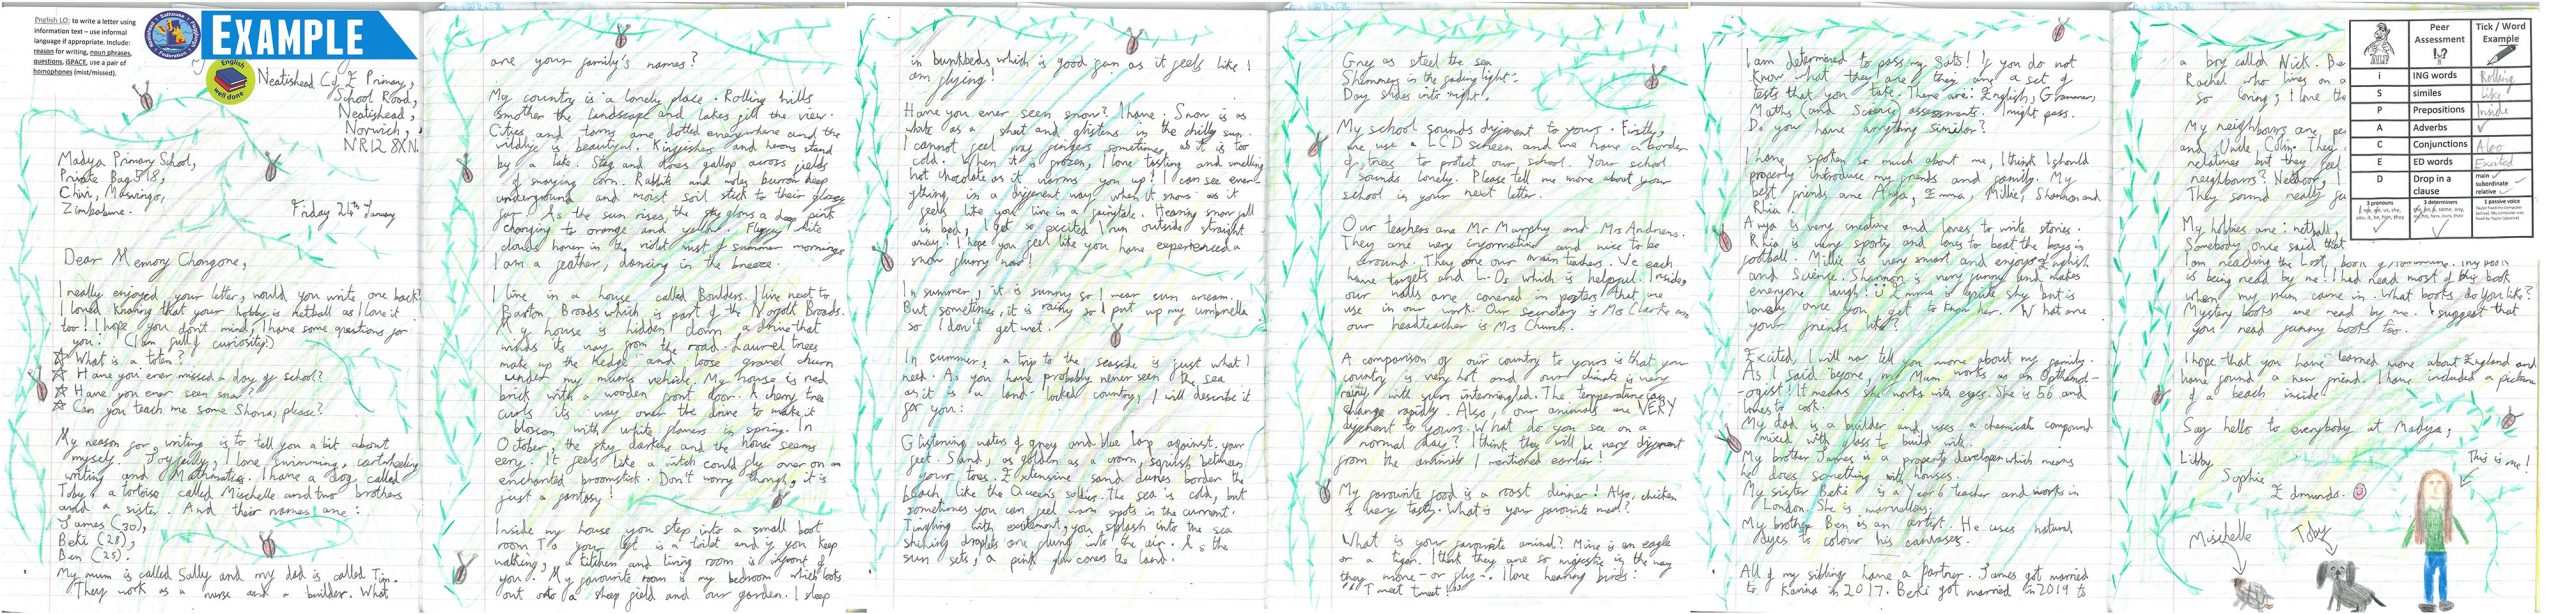 English LO: to write a letter using
information text – use informal
language if appropriate. Include:
reason for writing, noun phrases,
questions, iSPACE, use a pair of
homophones (mist/missed).
EXAMPLE
English
well done
Neatishead C of E Primary,
School Road,
Neatishead,
Norwich,
NR12 8XN.
Madya Primary School,
Private Bag 518,
Chivi, Masvingo,
Zimbabwe.
Friday 24th January
Dear Memory Chongone,
I really enjoyed your letter, would you write one back?
I loved knowing that your hobby is netball as I love it
too! I hope you don't mind, I have some questions for
you: (I am full of curiosity!)
☆ What is a toten?
☆ Have you ever missed a day of school?
☆ Have you ever seen snow?
☆ Can you teach me some Shona, please?
My reason for writing is to tell you a bit about
myself. Joyfully, I love swimming, cartwheeling,
writing and Mathmatics. I have a dog called
Toby, a tortoise called Mischelle and two brothers
and a sister. And their names are:
James (30),
Beki (28),
Ben (25).
My mum is called Sally and my dad is called Tim.
They work as a nurse and a builder. What
are your family's names?
My country is a lonely place. Rolling hills
smother the landscape and lakes fill the view.
Cities and towns are dotted everywhere and the
wildlife is beautiful. Kingfishers and herons stand
by a lake. Stags and does gallop across fields
of swaying corn. Rabbits and moles burrow deep
underground and moist soil stick to their glossy
fur. As the sun rises, the sky glows a deep pink
changing to orange and yellow. Fluffy white
clouds hover in the violet mist of summer mornings
I am a feather, dancing in the breeze.
I live in a house called Boulders. I live next to
Barton Broads which is part of the Norfolk Broads.
My house is hidden down a drive that
winds its way from the road. Laurel trees
make up the hedge and loose gravel churn
under my mum's vehicle. My house is red
brick with a wooden front door. A cherry tree
curls its way over the drive to make it
blossom with white flowers in spring. In
October, the sky darkens and the house seems
eery. It feels like a witch could fly over on an
enchanted broomstick. Don't worry though, it is
just a fantasy!
Inside my house you step into a small boot
room. To you left is a toilet and if you keep
walking, a kitchen and living room is infront of
you. My favourite room is my bedroom which looks
out onto a sheep field and our garden. I sleep
in bunkbeds which is good fun as it feels like I
am flying!
Have you ever seen snow? I have. Snow is as
white as a sheet and glistens in the chilly sun.
I cannot feel my fingers sometimes, as it is too
cold. When it is frozen, I love tasting and smelling
hot chocolate as it warms you up! I can see ever-
ything in a different way when it snows as it
feels like you live in a fairytale. Hearing snow fall
in bed, I get so excited I run outside straight
away! I hope you feel like you have experienced a
snow flurry now!
In summer, it is sunny so I wear sun cream.
But sometimes, it is rainy so I put up my umbrella
so I don't get wet.
In summer, a trip to the seaside is just what I
need. As you have probably never seen the sea
as it is a land-locked country, I will describe it
for you:
Glistening waters of grey and blue lap against your
feet. Sand, as golden as a crown, squish between
your toes. Extensive sand dunes border the
beach, like the Queen's soldiers. The sea is cold, but
sometimes you can feel warm spots in the current.
Tingling with excitement, you splash into the sea
shining droplets are flung into the air. As the
sun sets, a pink glow covers the land.
Grey as steel the sea
Shimmers in the fading light.
Day slides into night.
My school sounds different to yours. Firstly,
we use a LCD screen and we have a border
of trees to protect our school. Your school
sounds lonely. Please tell me more about your
school in your next letter.
Our teachers are Mr Murphy and Mrs Andrews.
They are very informative and nice to be
around. They are our main teachers. We each
have targets and L.Os which is helpful. Inside,
our walls are covered in posters that we
use in our work. Our secretary is Mrs Clarke and
our headteacher is Mrs Church.
A comparison of our country to yours is that your
country is very hot and our climate is very
rainy with warm intermingled. The temperature can
change rapidly. Also, our animals are VERY
different to yours. What do you see on a
normal day? I think they will be very different
from the animals I mentioned earlier!
My favourite food is a roast dinner! Also, chicken
is very tasty. What is your favourite meal?
What is your favourite animal? Mine is an eagle
or a tiger. I think they are so majestic in the way
they move - or fly -. I love hearing birds:
"Tweet tweet!"
I am determered to pass my Sats! If you do not
know what they are they are a set of
tests that you take. There are: English, Grammer,
Maths (and Science) assessments. I might pass.
Do you have anything similar?
I have spoken so much about me, I think I should
properly introduce my friends and family. My
best friends are Anya, Emma, Millie, Shannon and
Rhia.
Anya is very creative and loves to write stories.
Rhia is very sporty and loves to beat the boys in
football. Millie is very smart and enjoys English
and Science. Shannon is very funny and makes
everyone laugh! Emma is quite shy but is
lovely once you get to know her. What are
your friends like?
Excited, I will now tell you more about my family.
As I said before, my Mum works as an Opthamol-
-ogist! It means she works with eyes. She is 56 and
loves to cook.
My dad is a builder and uses a chemical compound
mixed with glass to build with.
My brother James is a property developer which means
he does something with houses.
My sister Beki is a Year 6 teacher and works in
London. She is marvellous.
My brother Ben is an artist. He uses natural
dyes to colour his canvases.
All of my siblings have a partner. James got married
to Karina in 2017. Beki got married in 2019 to
a boy called Nick. Be
Rachel who lives on a
so loving; I love the
My neighbours are pe
and Uncle Colin. They
relatives but they feel
neighbours? Netball, I
They sound really fu
My hobbies are: netball,
Somebody once said that
I am reading the Lost
is being read by me! I had read most of this book
when my mum came in. What books do you like?
Mystery books are read by me. I suggest that
you read funny books too.
I hope that you have learned more about England and
have found a new friend. I have included a picture
of a beach inside.
Say hello to everybody at Madya,
Libby
Sophie
Edmunds.
This is me!
Mischelle
Toby
Peer
Assessment
Tick / Word
Example
i ING words Rolling
S similes Like
P Prepositions Inside
A Adverbs ✓
C Conjunctions Also
E ED words Excited
D Drop in a
clause
main ✓
subordinate ✓
relative ✓
3 pronouns
3 determiners
1 passive voice